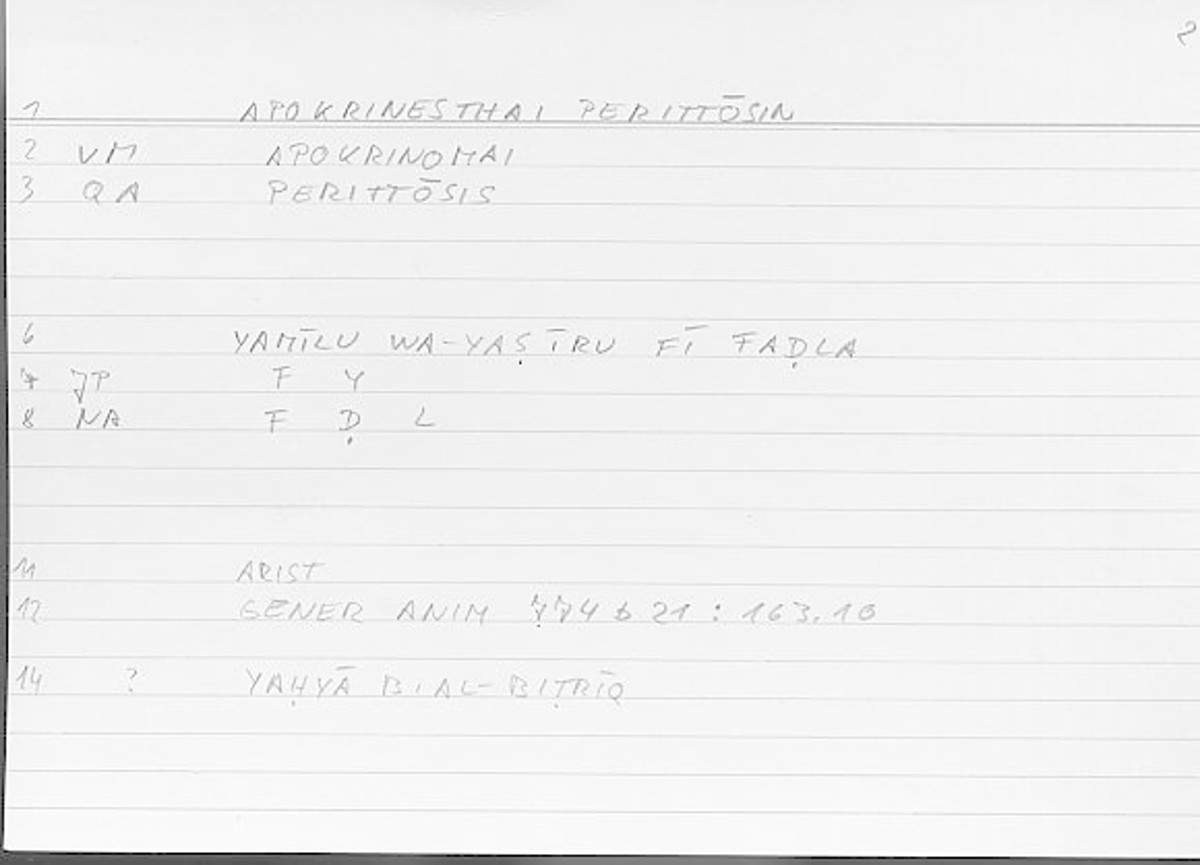 2
1 APOKRINESTHAI PERITTŌSIN
2 VM APOKRINOMAI
3 QA PERITTŌSIS
6 YAMĪLU WA-YAṢĪRU FĪ FAḌLA
7 JP F Y
8 NA F Ḍ L
11 ARIST
12 GENER ANIM 774 b 21 : 163.10
14 ? YAḤYĀ B. AL-BIṬRĪQ